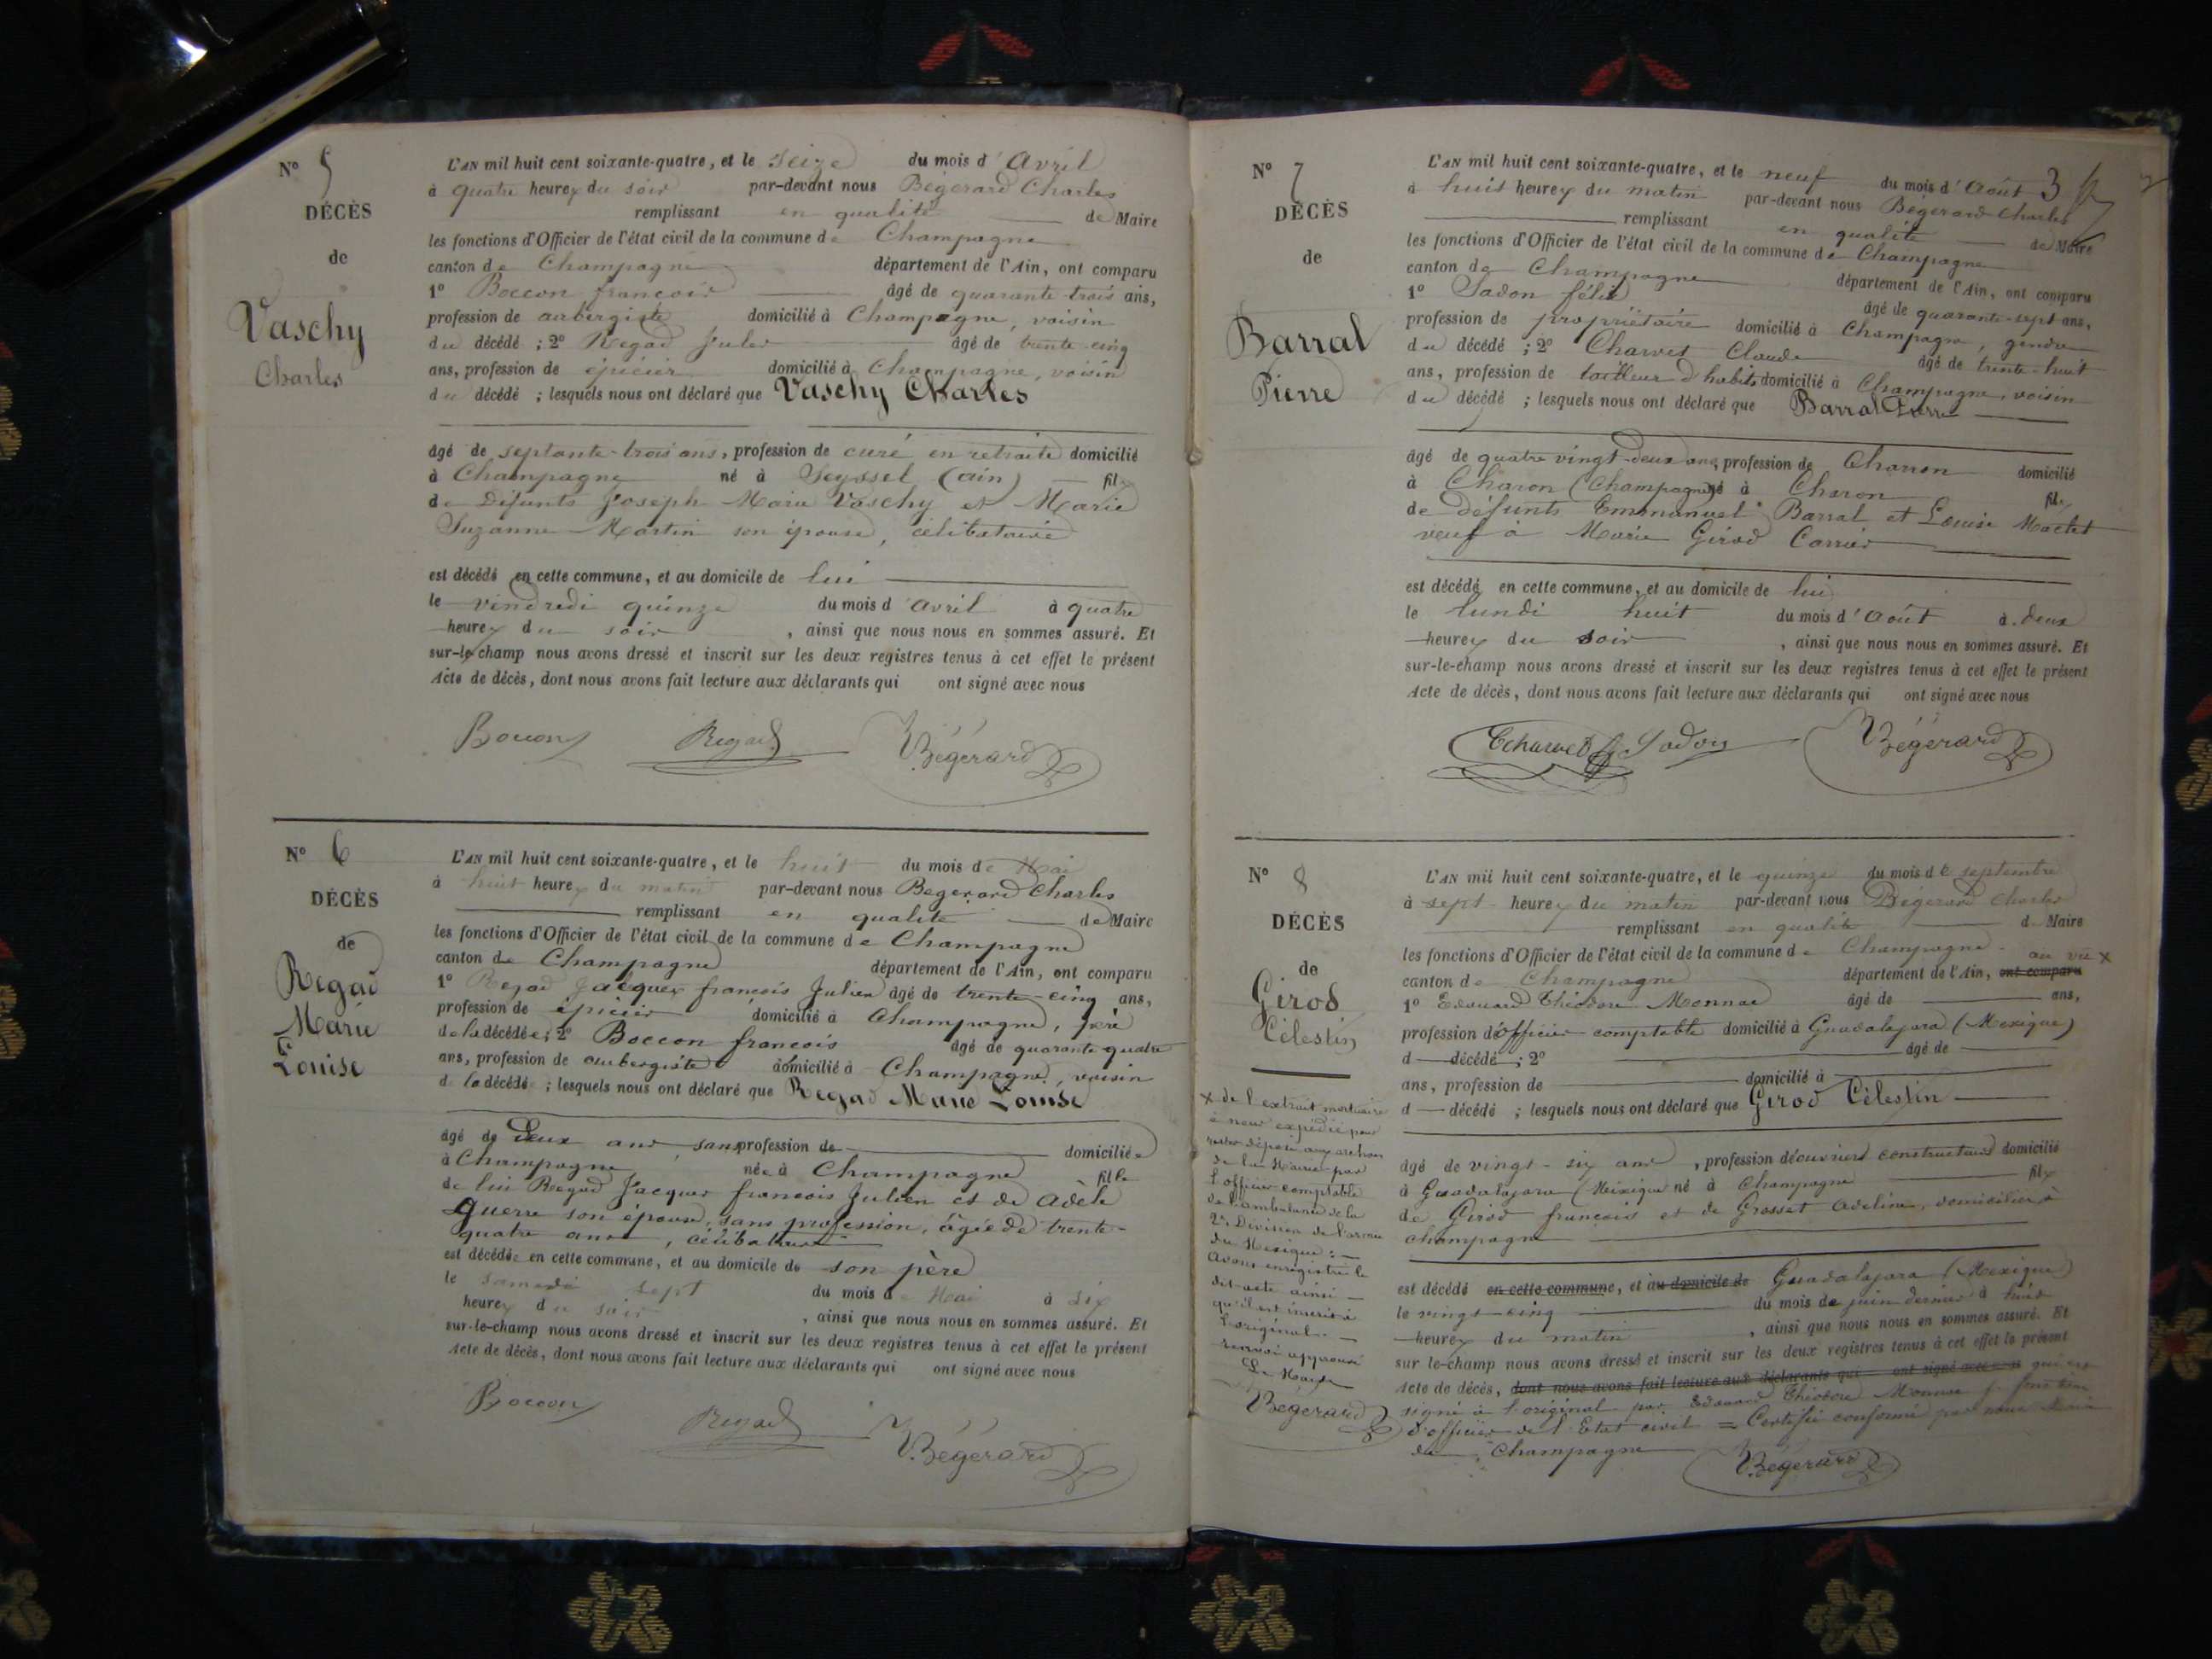 N° 5
DÉCÈS
de
Vaschy
Charles
L'AN mil huit cent soixante-quatre, et le Seize du mois d'Avril
à quatre heures du soir par-devant nous Bégerard Charles
remplissant en qualité de Maire
les fonctions d'Officier de l'état civil de la commune de Champagne
canton de Champagne département de l'Ain, ont comparu
1° Boccon françois âgé de quarante-trois ans,
profession de aubergiste domicilié à Champagne, voisin
du décédé ; 2° Regad Jules âgé de trente-cinq
ans, profession de épicier domicilié à Champagne, voisin
du décédé ; lesquels nous ont déclaré que Vaschy Charles
âgé de septante-trois ans, profession de curé en retraite domicilié
à Champagne né à Seyssel (ain) fils
de Défunts Joseph-Marie Vaschy et Marie
Suzanne Martin son épouse, célibataire
est décédé en cette commune, et au domicile de lui
le vendredi quinze du mois d'avril à quatre
heures du soir, ainsi que nous nous en sommes assuré. Et
sur-le-champ nous avons dressé et inscrit sur les deux registres tenus à cet effet le présent
Acte de décès, dont nous avons fait lecture aux déclarants qui ont signé avec nous
Boccon Regad Bégerard
N° 6
DÉCÈS
de
Regad
Marie
Louise
L'AN mil huit cent soixante-quatre, et le huit du mois de Mai
à huit heures du matin par-devant nous Begerard Charles
remplissant en qualité de Maire
les fonctions d'Officier de l'état civil de la commune de Champagne
canton de Champagne département de l'Ain, ont comparu
1° Regad Jacques françois Julien âgé de trente-cinq ans,
profession de épicier domicilié à Champagne, père
de la décédée ; 2° Boccon francois âgé de quarante quatre
ans, profession de aubergiste domicilié à Champagne, voisin
de la décédée ; lesquels nous ont déclaré que Regad Marie Louise
âgé de Deux ans, sans profession de domiciliée
à Champagne née à Champagne fille
de lui Regad Jacques francois Julien et de Adèle
Guerre son épouse, sans profession, âgée de trente-
quatre ans, célibataire
est décédée en cette commune, et au domicile de son père
le samedi sept du mois de Mai à six
heures du soir, ainsi que nous nous en sommes assuré. Et
sur-le-champ nous avons dressé et inscrit sur les deux registres tenus à cet effet le présent
Acte de décès, dont nous avons fait lecture aux déclarants qui ont signé avec nous
Boccon Regad Bégerard
3
N° 7
DÉCÈS
de
Barral
Pierre
L'AN mil huit cent soixante-quatre, et le neuf du mois d'Août
à huit heures du matin par-devant nous Bégerard Charles
remplissant en qualité de Maire
les fonctions d'Officier de l'état civil de la commune de Champagne
canton de Champagne département de l'Ain, ont comparu
1° Sadon félix âgé de quarante-sept ans,
profession de propriétaire domicilié à Champagne, gendre
du décédé ; 2° Charvet Claude âgé de trente-huit
ans, profession de tailleur d'habits domicilié à Champagne, voisin
du décédé ; lesquels nous ont déclaré que Barral Pierre
âgé de quatre vingt-deux ans, profession de Charron domicilié
à Charon (Champagne) né à Charon fils
de défunts Emmanuel Barral et Louise Mactet
veuf à Marie Girod Carrier
est décédé en cette commune, et au domicile de lui
le lundi huit du mois d'Août à deux
heures du soir, ainsi que nous nous en sommes assuré. Et
sur-le-champ nous avons dressé et inscrit sur les deux registres tenus à cet effet le présent
Acte de décès, dont nous avons fait lecture aux déclarants qui ont signé avec nous
Charvet Sadon Bégerard
N° 8
DÉCÈS
de
Girod
Célestin
L'AN mil huit cent soixante-quatre, et le quinze du mois de septembre
à sept heures du matin par-devant nous Bégerard Charles
remplissant en qualité de Maire
les fonctions d'Officier de l'état civil de la commune de Champagne
canton de Champagne département de l'Ain, ont comparu au vu x
1° Edouard Théodore Monnae âgé de ans,
profession d'officier comptable domicilié à Guadalajara (Mexique)
d décédé ; 2° âgé de
ans, profession de domicilié à
d décédé ; lesquels nous ont déclaré que Girod Célestin
âgé de vingt-six ans, profession d'ouvriers constructeurs domicilié
à Guadalajara (Mexique né à Champagne fils
de Girod francois et de Grosset Adeline, domiciliés à
champagne
est décédé en cette commune, et au domicile de Guadalajara (Mexique)
le vingt-cinq du mois de juin dernier à huit
heures du matin, ainsi que nous nous en sommes assuré. Et
sur le-champ nous avons dressé et inscrit sur les deux registres tenus à cet effet le présent
Acte de décès, dont nous avons fait lecture aux déclarants qui ont signé avec nous qui est
signé à l'original par Edouard Théodore Monnae f. fonction
d'officier de l'Etat civil = Certifié conforme par nous Maire
de Champagne
Bégerard
x de l'extrait mortuaire
à nous expédié pour
rester déposé aux archives
de la Mairie par
l'officier comptable
de l'ambulance de la
2e Division de l'armée
du Mexique : —
avons enregistré le
dit acte ainsi —
qu'il est inscrit à
l'original. —
renvoi approuvé
Le Maire
Bégerard